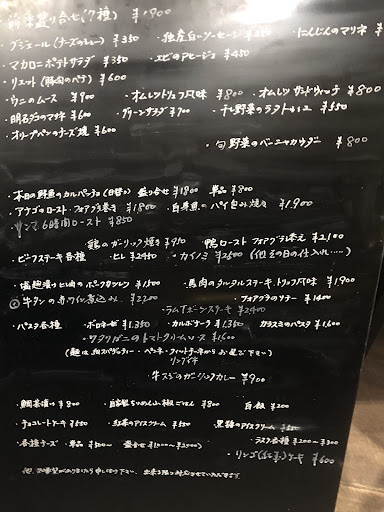 前菜盛り合せ(7種) ¥1900
・グジェール(チーズのシュー) ¥350 ・独産白ソーセージ ¥350 ・にんじんのマリネ
・マカロニポテトサラダ ¥350 ・エビのアヒージョ ¥450
・リエット(豚肉のパテ) ¥600
・ウニのムース ¥900 ・オムレツトリュフ風味 ¥800 ・オムレツサンドウィッチ ¥800
・明太子のマリネ ¥600 ・グリーンサラダ ¥700 ・十勝野菜のラタトゥイユ ¥550
・オリーブパンのチーズ焼 ¥600
・旬野菜のバーニャカウダー ¥800
・本日の鮮魚のカルパッチョ(日替り) 盛り合せ ¥1800 単品 ¥800
・アナゴのロースト・フォアグラ巻き ¥1800 ・白身魚のパイ包み焼き ¥1,900
・サンマ6時間ロースト ¥850
鶏のガーリック焼き ¥950 鴨ロースト フォアグラ添え ¥2100
・ビーフステーキ各種 ・ヒレ ¥2450 ・カイノミ ¥2500 (他その日の仕入れ……)
・塩麹漬けヒレ肉のポークカツレツ ¥1500 ・馬肉のタルタルステーキ、トリュフ風味 ¥1900
◎牛タンの赤ワイン煮込み ¥2200 ・フォアグラのソテー ¥1400
・ラムTボーンステーキ ¥2400
・パスタ各種 ・ボロネーゼ ¥1,350 ・カルボナーラ ¥1,350 カラスミのパスタ ¥1600
・ワタリガニのトマトクリームソース ¥1600
(麺は、スパゲッティー・ペンネ・フィットチーネからお選び下さい)
リングイネ
・牛スジのガーリックカレー ¥900
・鯛茶漬け ¥800 ・自家製ちりめん山椒ごはん ¥800 白飯 ¥200
・チョコレートケーキ ¥550 ・紅茶のアイスクリーム ¥550 ・黒糖のアイスクリーム ¥550
・各種チーズ ・単品 ¥500〜 盛合せ(¥1000〜¥2000) ラスク各種 ¥200〜¥300
・リンゴ(紅玉)ケーキ ¥600
他、ご希望がありましたら申し付け下さい。出来る限り対応させていただきます。